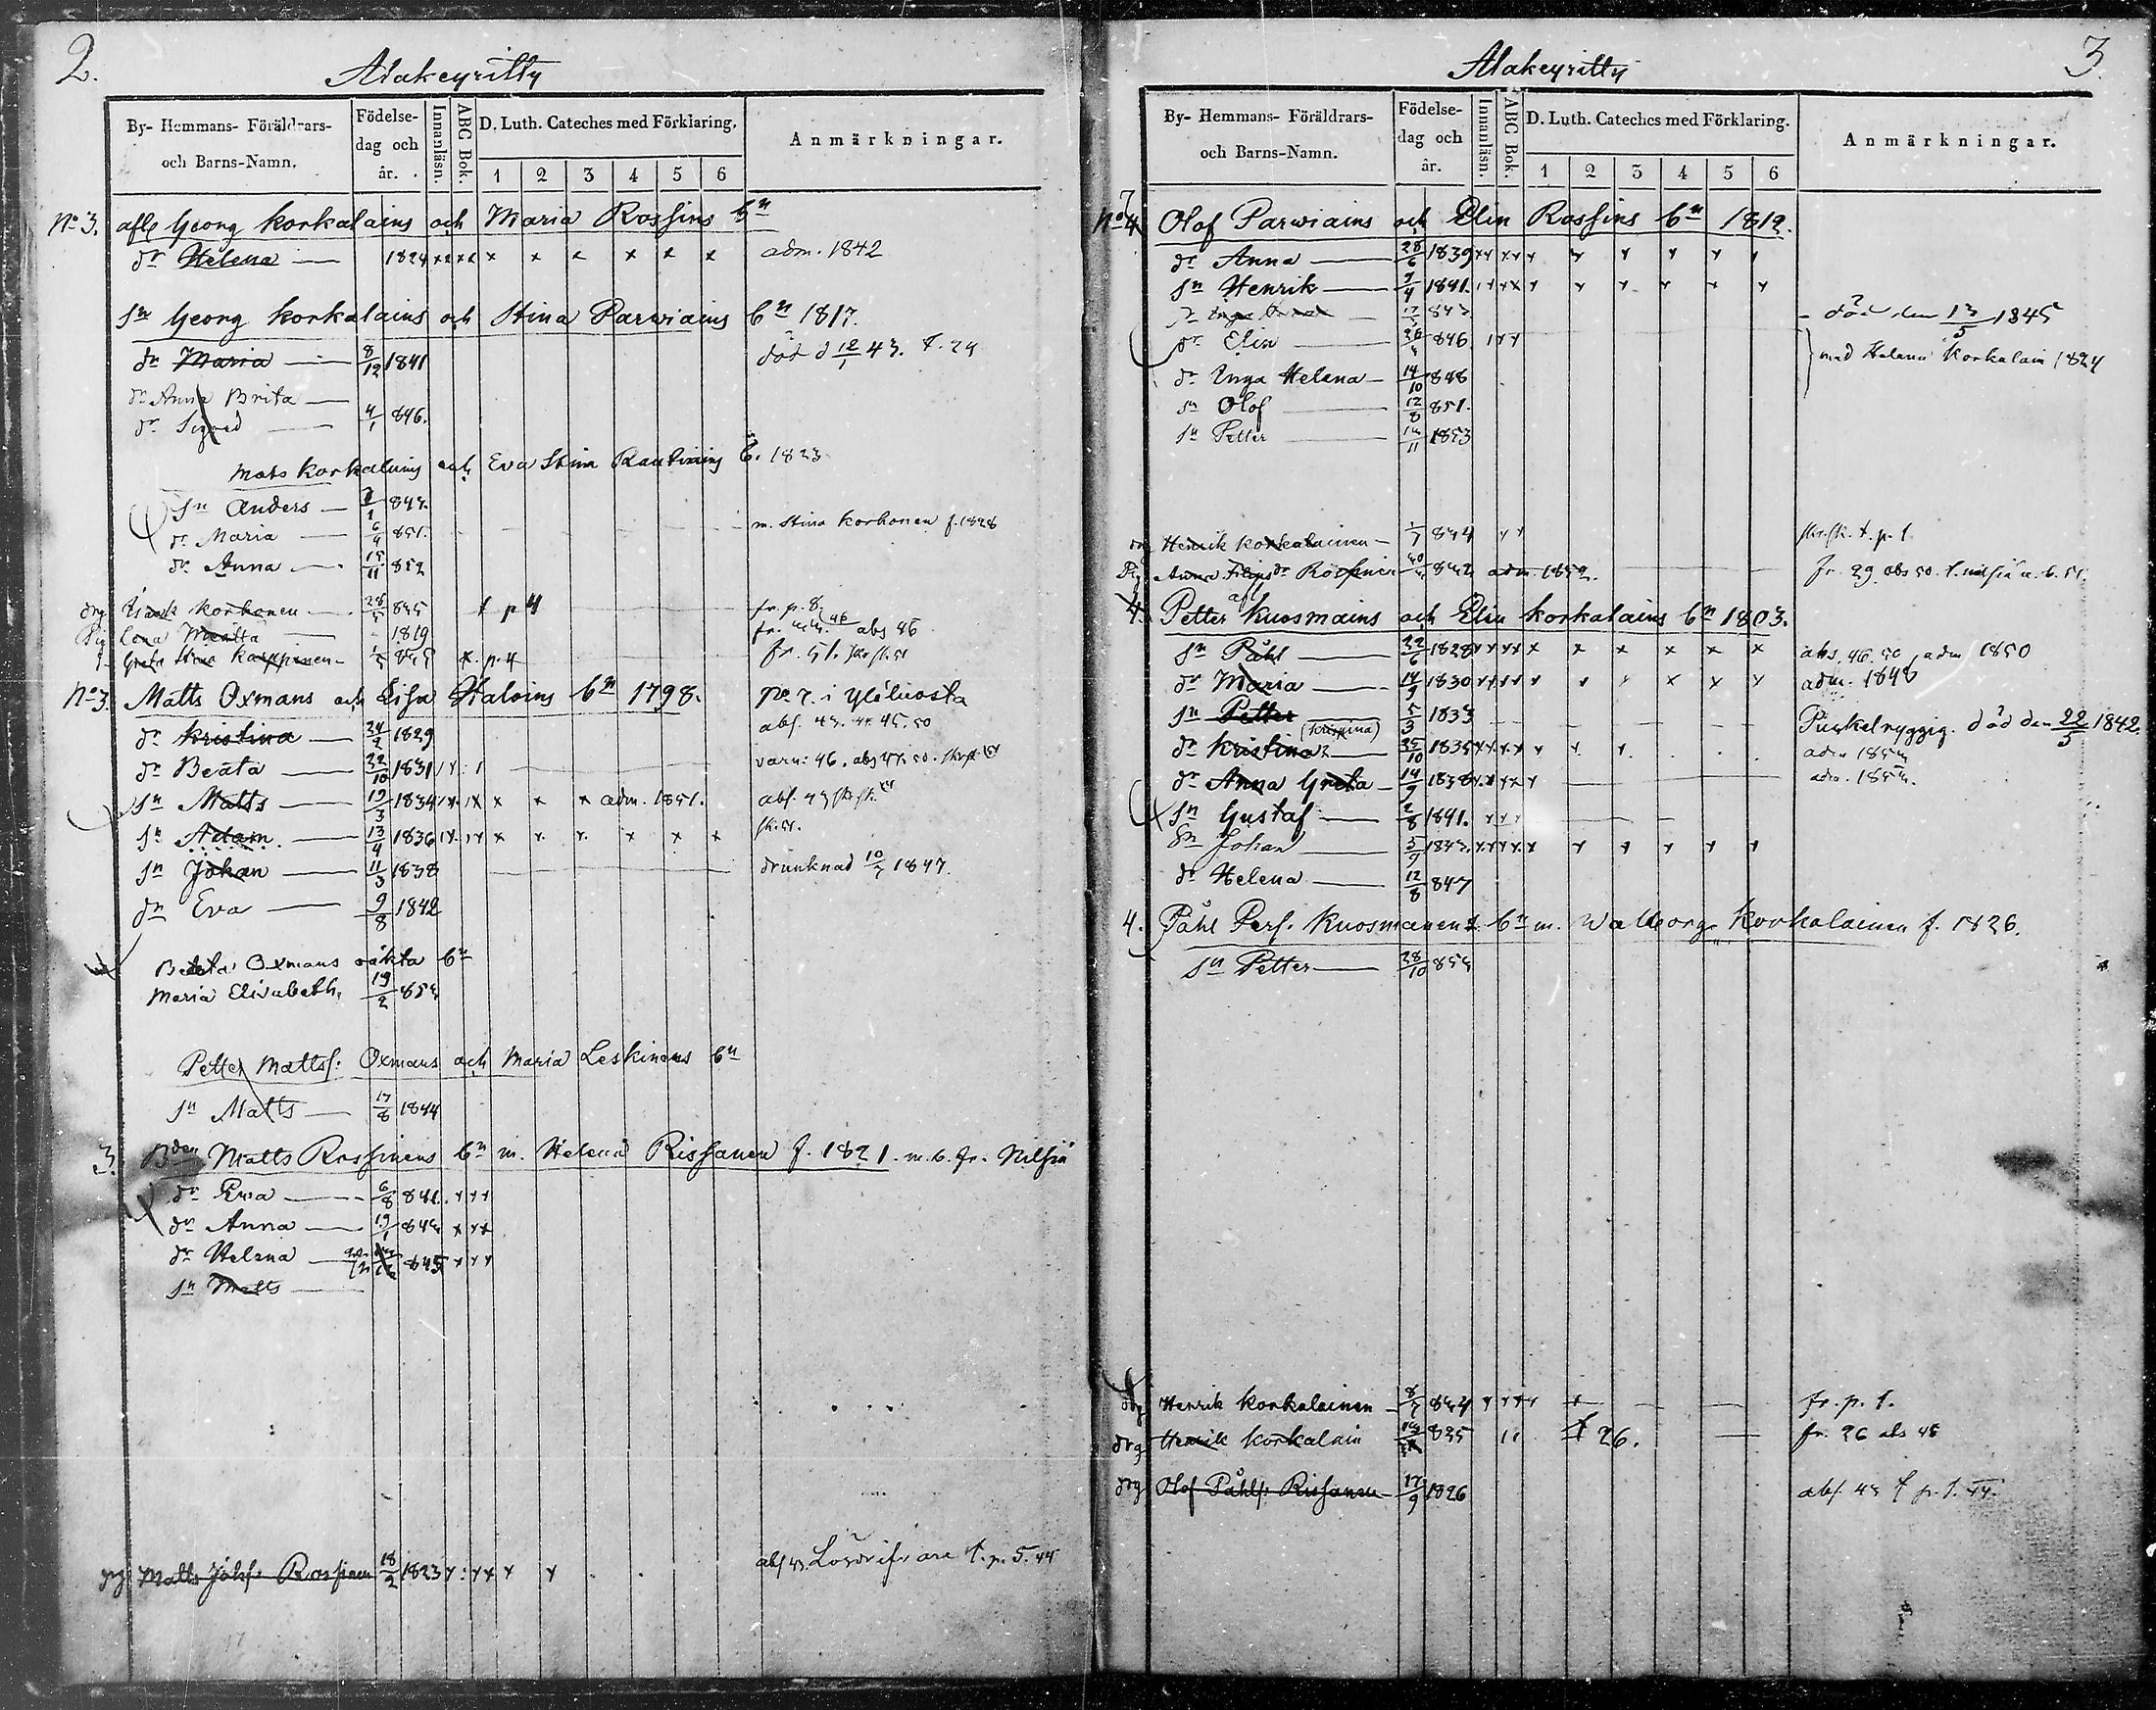 2.
Alakeyritty
By- Hemmans- Föräldrars- och Barns-Namn.
Födelse- dag och år.
Innanläsn.
ABC Bok.
D. Luth. Cateches med Förklaring.
1 2 3 4 5 6
Anmärkningar.
No 3. afl. Georg Korkalains och Maria Rossins bn
dr Helena 1824 adm. 1842
sn Georg Korkalains och Stina Parwiains bn 1817.
dr Maria 8/12 1841 död d 12/1 43. t. 24
dr Anna Brita
dr Sigrid 4/1 846.
Mats Korkalains och Eva Stina Rautiains b. 1823
sn Anders
dr Maria 6/4 851. m. Stina Korhonen f. 1828
dr Anna 15/11 852
drg Isaak Korhonen 28/5 835 t p 4 fr. p. 8
Pig Lena 1819 abs 46
Greta Stina Karppinen t. p. 4 fr. 51.
No 3. Matts Oxmans och Lisa Halvins bn 1798.
dr Kristina 24/2 1829 abs. 43. 44. 45. 50
dr Beata 22/10 1831 varn: 46. abs 47. 50.
sn Matts 19/3 1834 adm. 1851.
sn Adam 13/4 1836
sn Johan 11/3 1838 drunknad 10/7 1847.
dr Eva 9/8 1842
Beata Oxmans oäkta bn
Maria Elisabeth. 19/2 853
Petter Mattss: Oxmans och Maria Leskinens bn
sn Matts 17/8 1844
3. Bden Matts Rossinens bn m. Helena Rissanen f. 1821. m. b. fr. Nilsiä
dr Eva 6/8 841.
dr Anna 19/1 843
dr Helena 845
sn Matts
drg Matts Johs: Rossinen 18/2 1823 t. p. 5. 44
3
Alakeyritty
By- Hemmans- Föräldrars- och Barns-Namn.
Födelse- dag och år.
Innanläsn.
ABC Bok.
D. Luth. Cateches med Förklaring.
1 2 3 4 5 6
Anmärkningar.
No 4 Olof Parwiains och Elin Rossins bn 1812.
dr Anna 28/6 1839
sn Henrik 7/4 1841.
843 död den 13/5 1845
dr Elin 846. med Helena Korkalain 1824
dr Inga Helena 14/10 848
sn Olof 12/8 851.
sn Petter 1853
drg Henrik Korkalainen 844
Pig Anna Filips dr Rossinen adm. 1859.
4. Petter Kuosmains och Elin Korkalains bn 1803.
sn Påhl 22/6 1828 abs. 46. 50, adm 1850
dr Maria 14/9 1830 adm. 1848
sn Petter 5/3 1833 Puckelryggig. död den 22/5 1842.
dr Kristina (Krispina) 25/10 1835
dr Anna Greta 14/9 1838
sn Gustaf 2/8 1841.
sn Johan 5/9 1843.
dr Helena 12/8 847
4. Påhl Pers. Kuosmanens bn m. Walborg Korkalainen f. 1826.
sn Petter 28/10 853
drg Henrik Korkalainen 844 fr. p. 1.
drg Henrik Korkalain 835 t 26. fr. 26 abs 48
drg Olof Påhls: Rissanen 17/9 1826 abs. 43 t p. 1. 44.